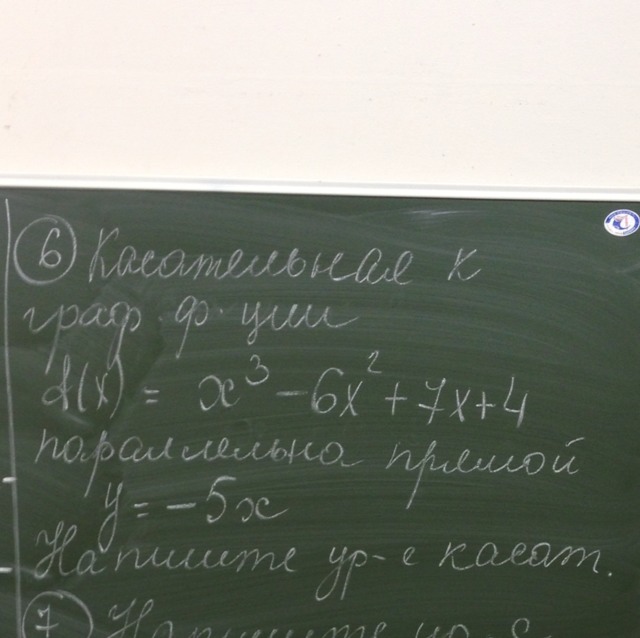 6 Касательная к
граф ф-ции
f(x) = x³ - 6x² + 7x + 4
параллельна прямой
y = -5x
Напишите ур-е касат.
7 Напишите